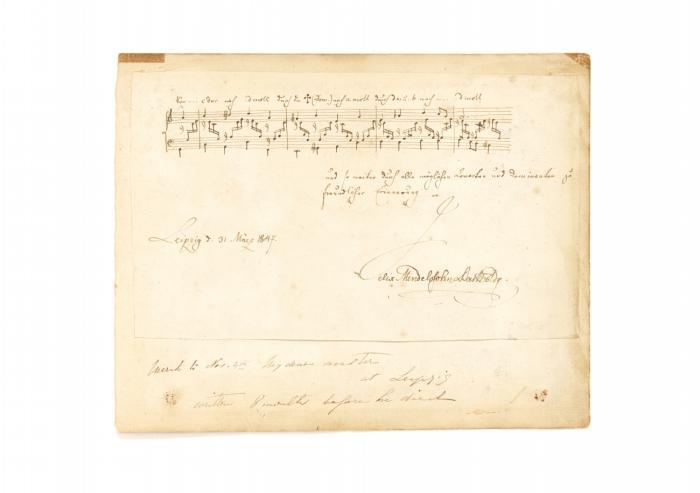 nach dmoll durch die (Dom.) nach a moll durch nach ... dmoll
und so weiter durch alle möglichen und Dominanten zu
freundlicher Erinnerung
Leipzig d. 31 März 1847.
Felix Mendelssohn Bartholdy.
to Nov. 4th My dear master
at Leipzig
written 8 months before he died